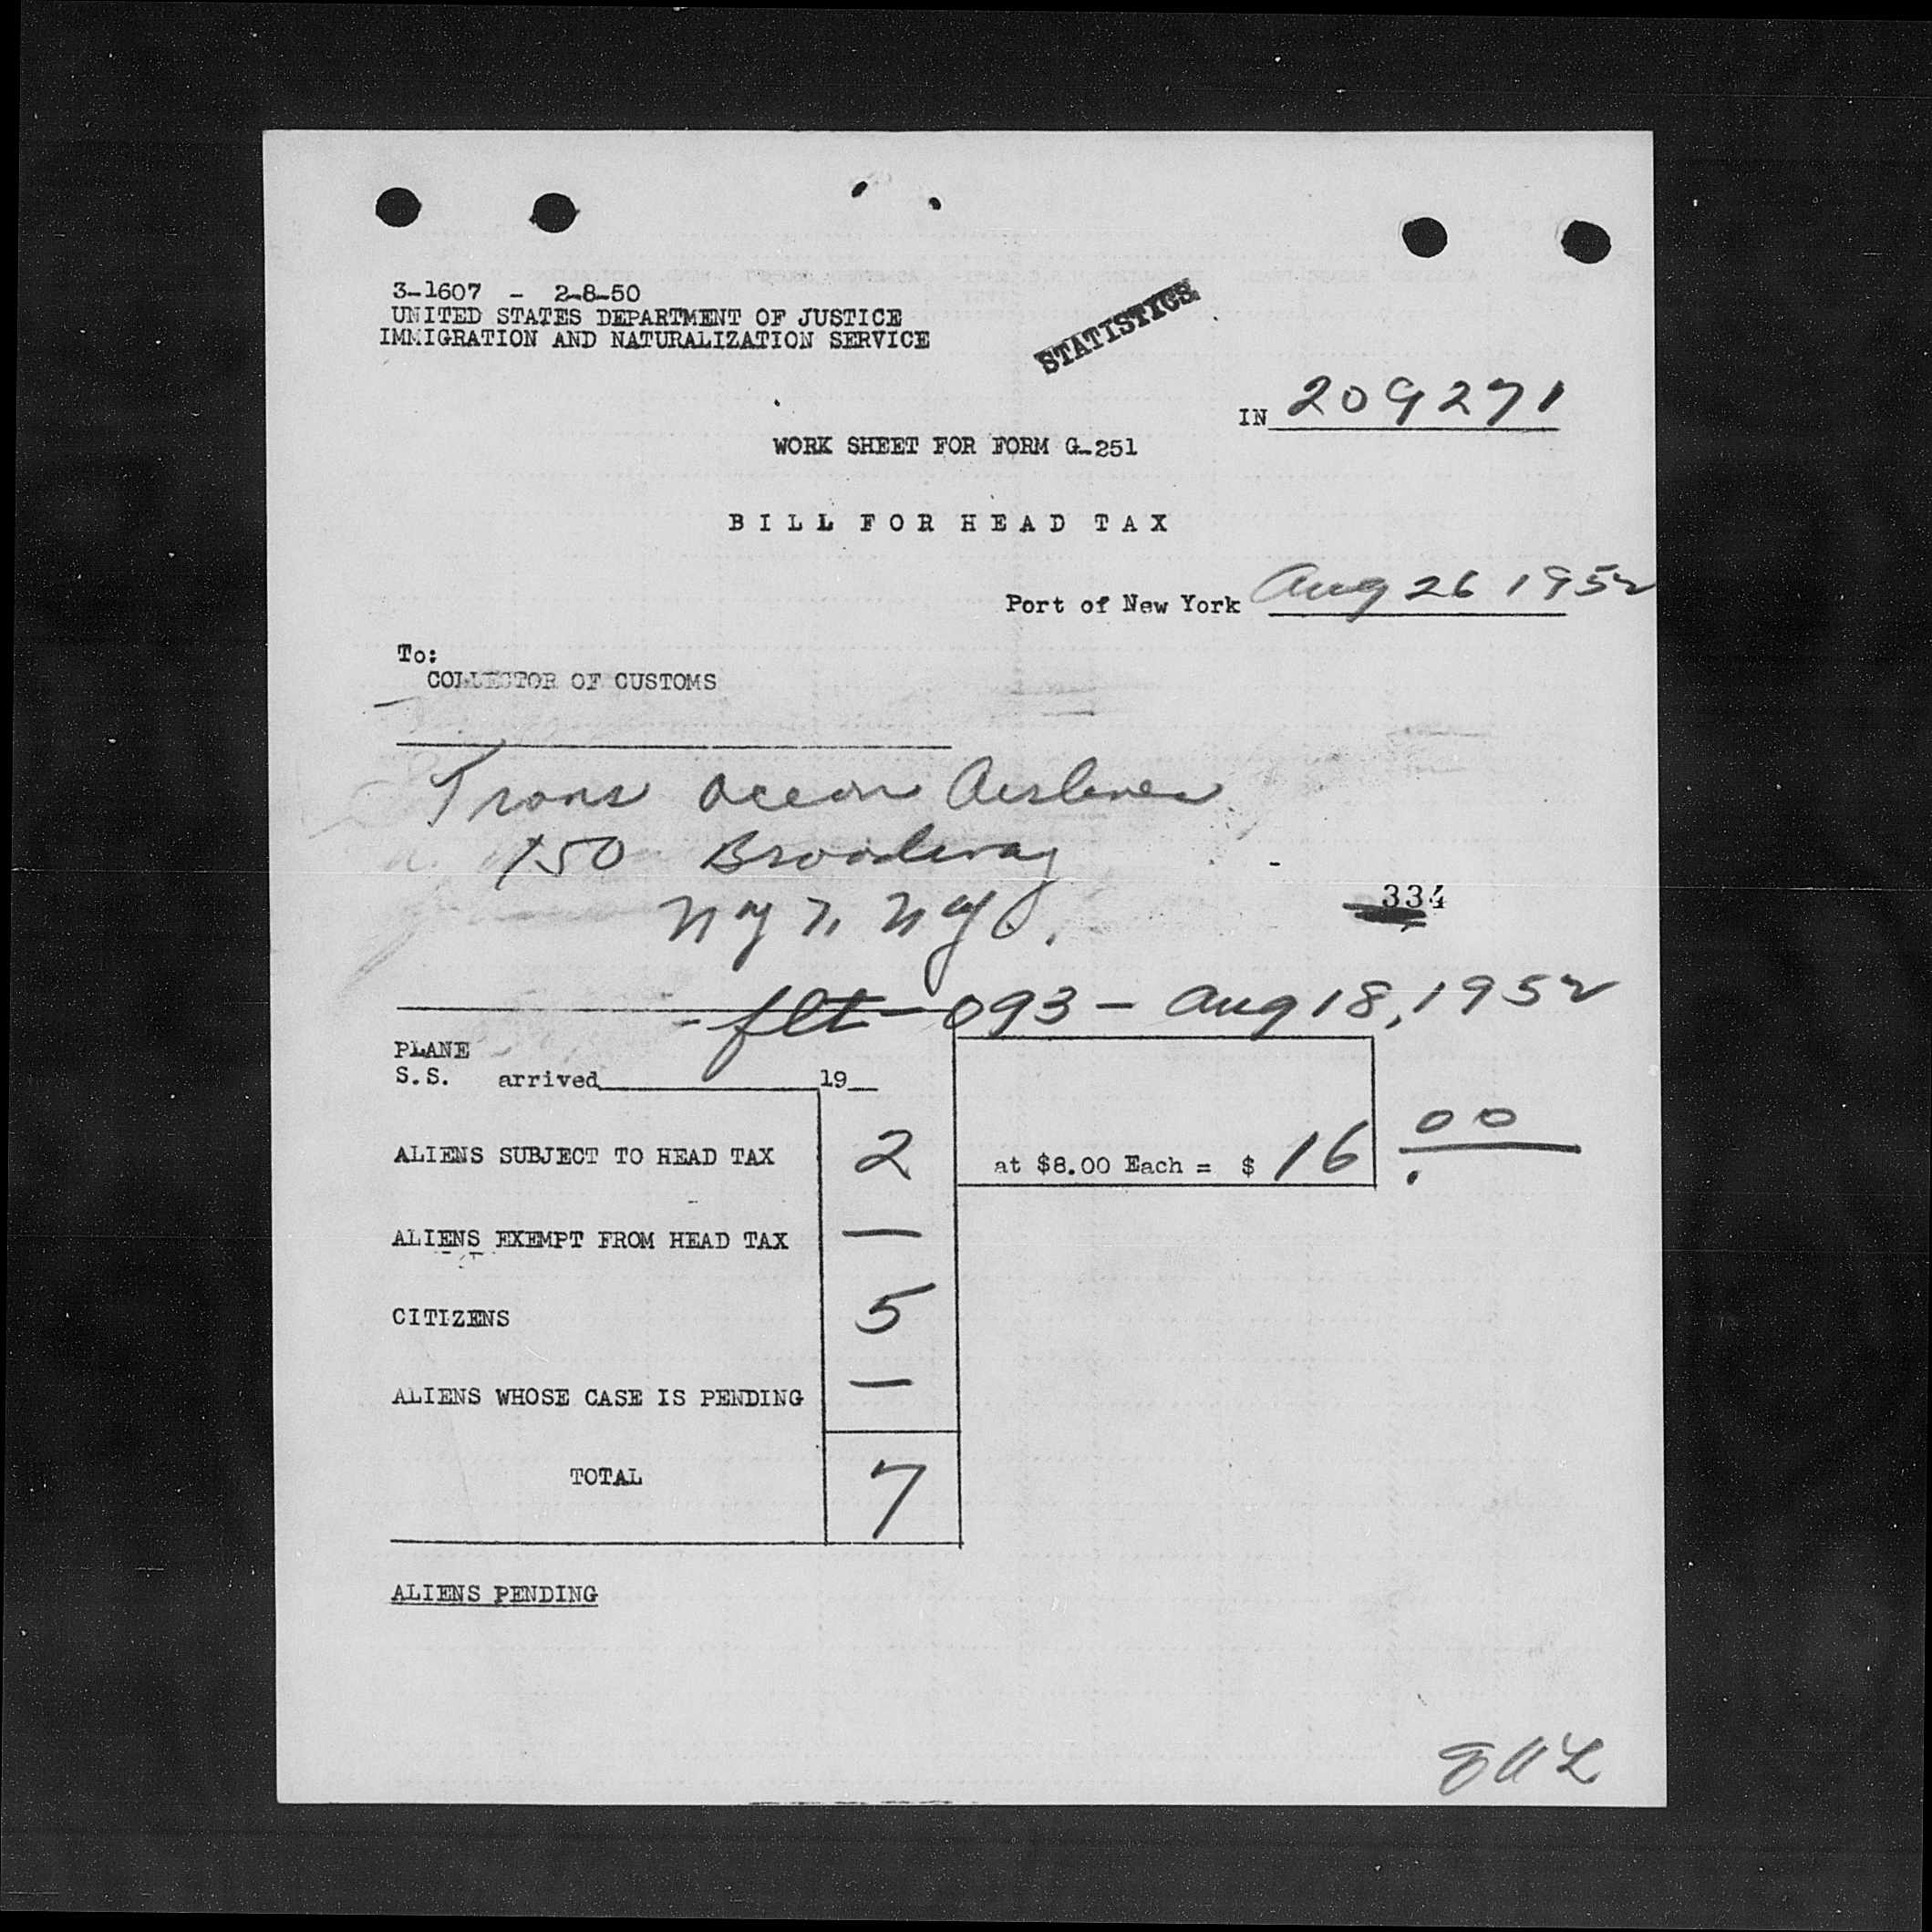 3-1607 - 2-8-50
UNITED STATES DEPARTMENT OF JUSTICE
IMMIGRATION AND NATURALIZATION SERVICE
STATISTICS
IN 209271
WORK SHEET FOR FORM G-251
BILL FOR HEAD TAX
Port of New York Aug 26 1952
To:
COLLECTOR OF CUSTOMS
Trans Ocean Airlines
150 Broadway
NY 7, NY.
334
- flt - 093 - Aug 18, 1952
PLANE
S.S. arrived 19
ALIENS SUBJECT TO HEAD TAX 2 at $8.00 Each = $ 16 00
ALIENS EXEMPT FROM HEAD TAX —
CITIZENS 5
ALIENS WHOSE CASE IS PENDING —
TOTAL 7
ALIENS PENDING